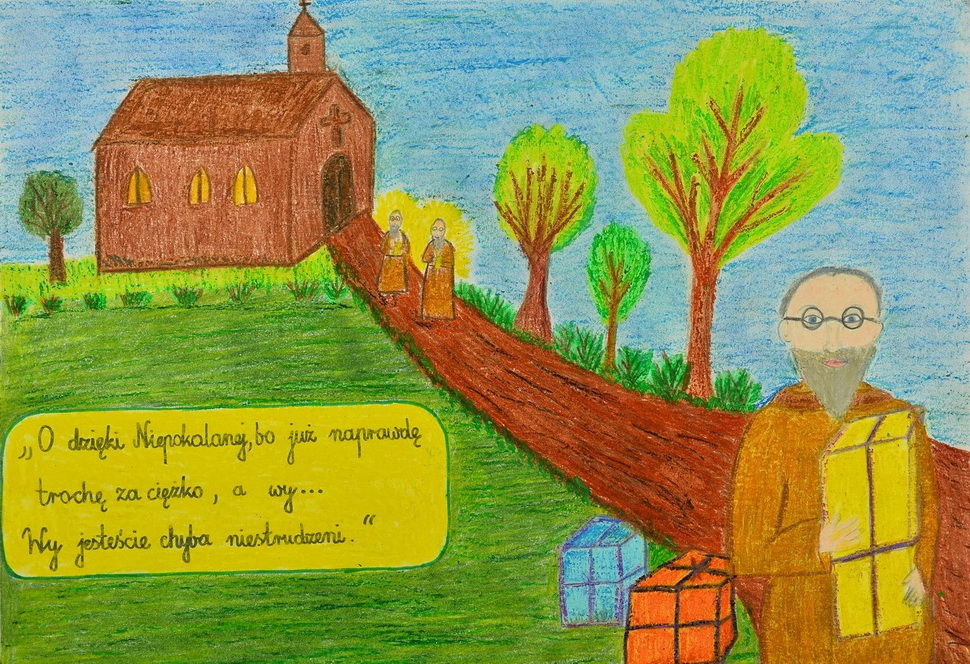 „O dzięki Niepokalanej, bo już naprawdę
trochę za ciężko, a wy...
Wy jesteście chyba niestrudzeni.“